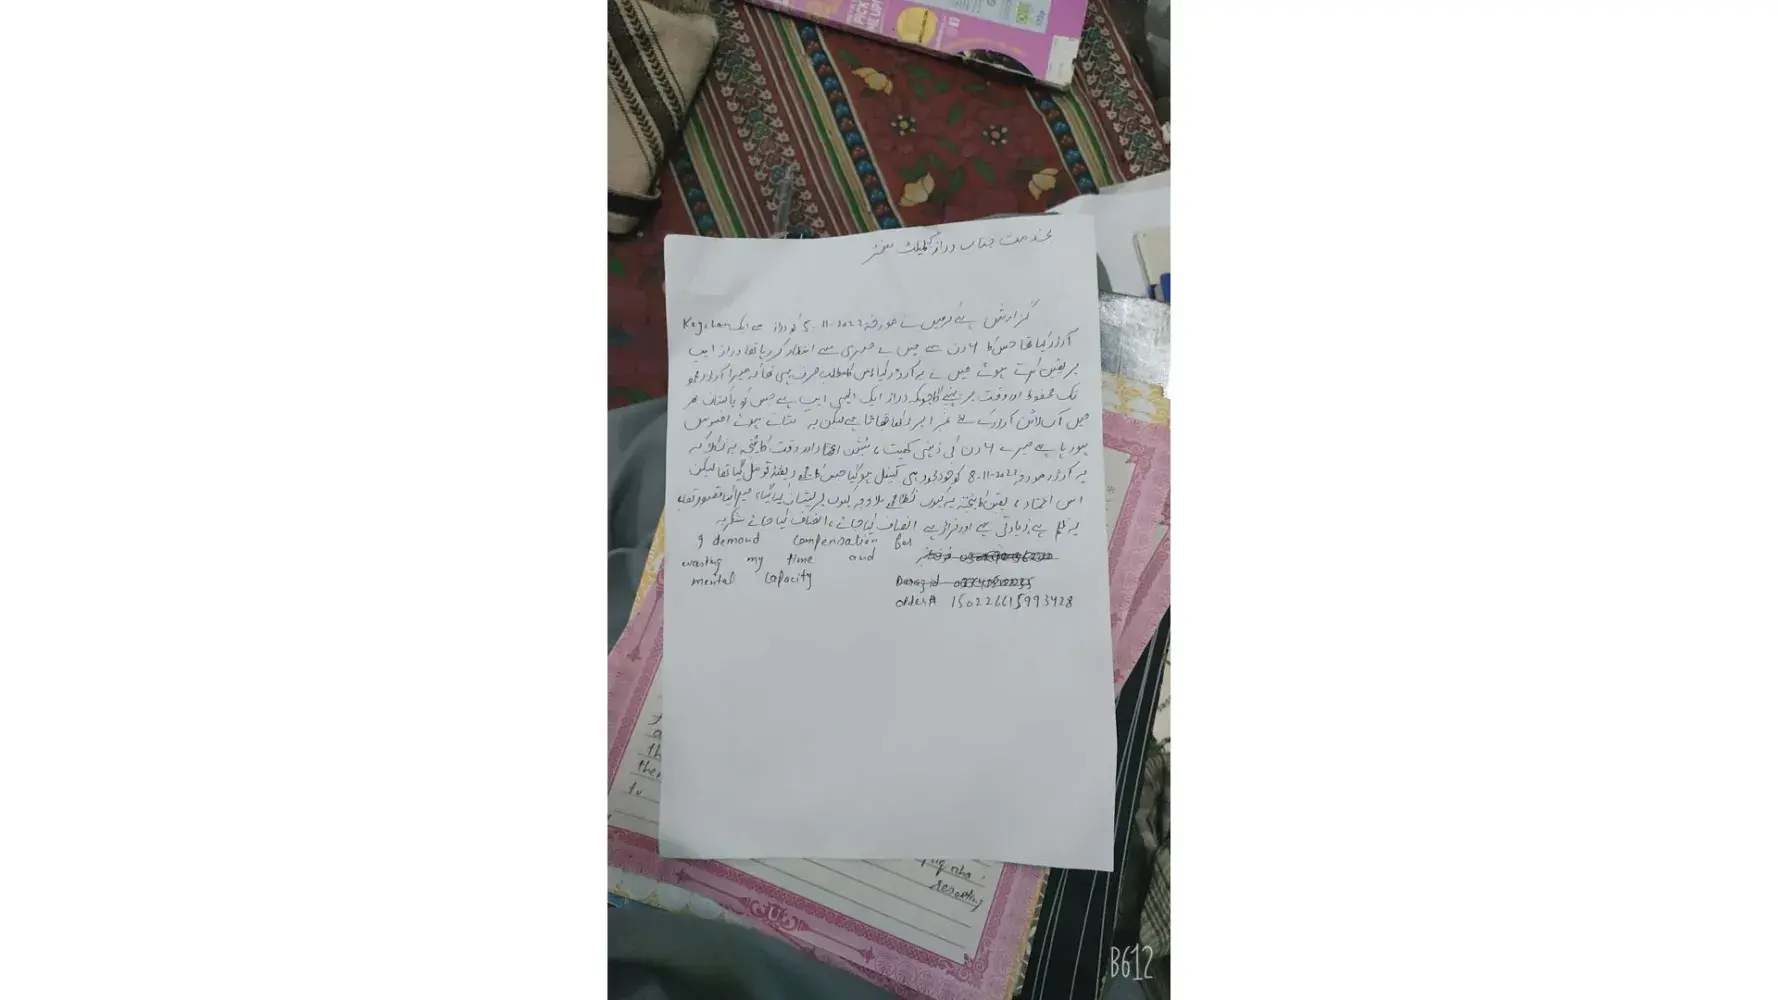 PICK
ME UP!
بخدمت جناب دراز کمپلینٹ سنٹر
گزارش ہے کہ میں نے مورخہ 5-11-2022 کو دراز سے ایک Keychain
آرڈر کیا تھا جس کا 4 دن سے میں بے صبری سے انتظار کر رہا تھا دراز ایپ
پر یقین کرتے ہوئے میں نے یہ آرڈر کیا جس کا مطلب صرف یہی تھا کہ میرا آرڈر مجھ
تک محفوظ اور وقت پر پہنچے گا چونکہ دراز ایک ایسی ایپ ہے جس کو پاکستان بھر
میں آن لائن آرڈر کے لئے نمبر ہے لیکن یہ بتاتے ہوئے افسوس
ہو رہا ہے میرے 4 دن کی ذہنی ٹینشن اعتماد اور وقت کا نتیجہ یہ نکلا کہ
یہ آرڈر مورخہ 8-11-2022 کو خود بخود ہی کینسل ہو گیا جس کا مجھے ریفنڈ تو مل گیا تھا لیکن
اس اعتماد، یقین کا نتیجہ یہ کیوں نکلا مجھے بلا وجہ کیوں پریشان کیا گیا، میرا کیا قصور تھا
یہ ظلم ہے زیادتی ہے اور فراڈ ہے انصاف کیا جائے، انصاف کیا جائے شکریہ
I demand compensation for
wasting my time and
mental capacity
Daraz id
order# 150226615993428
to
resorting
B612